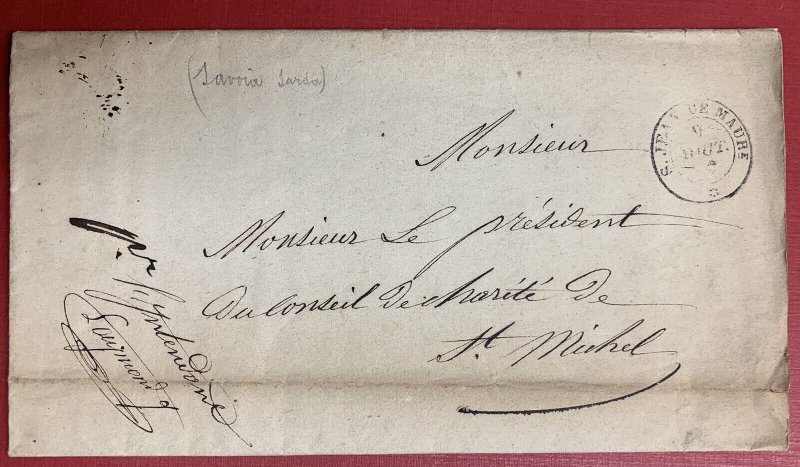 (Savoia Sarda)
S. JEAN DE MAURE
9
AOUT.
Monsieur
Monsieur Le président
Du Conseil De charité de
St. Michel
pr. l'Yntendance